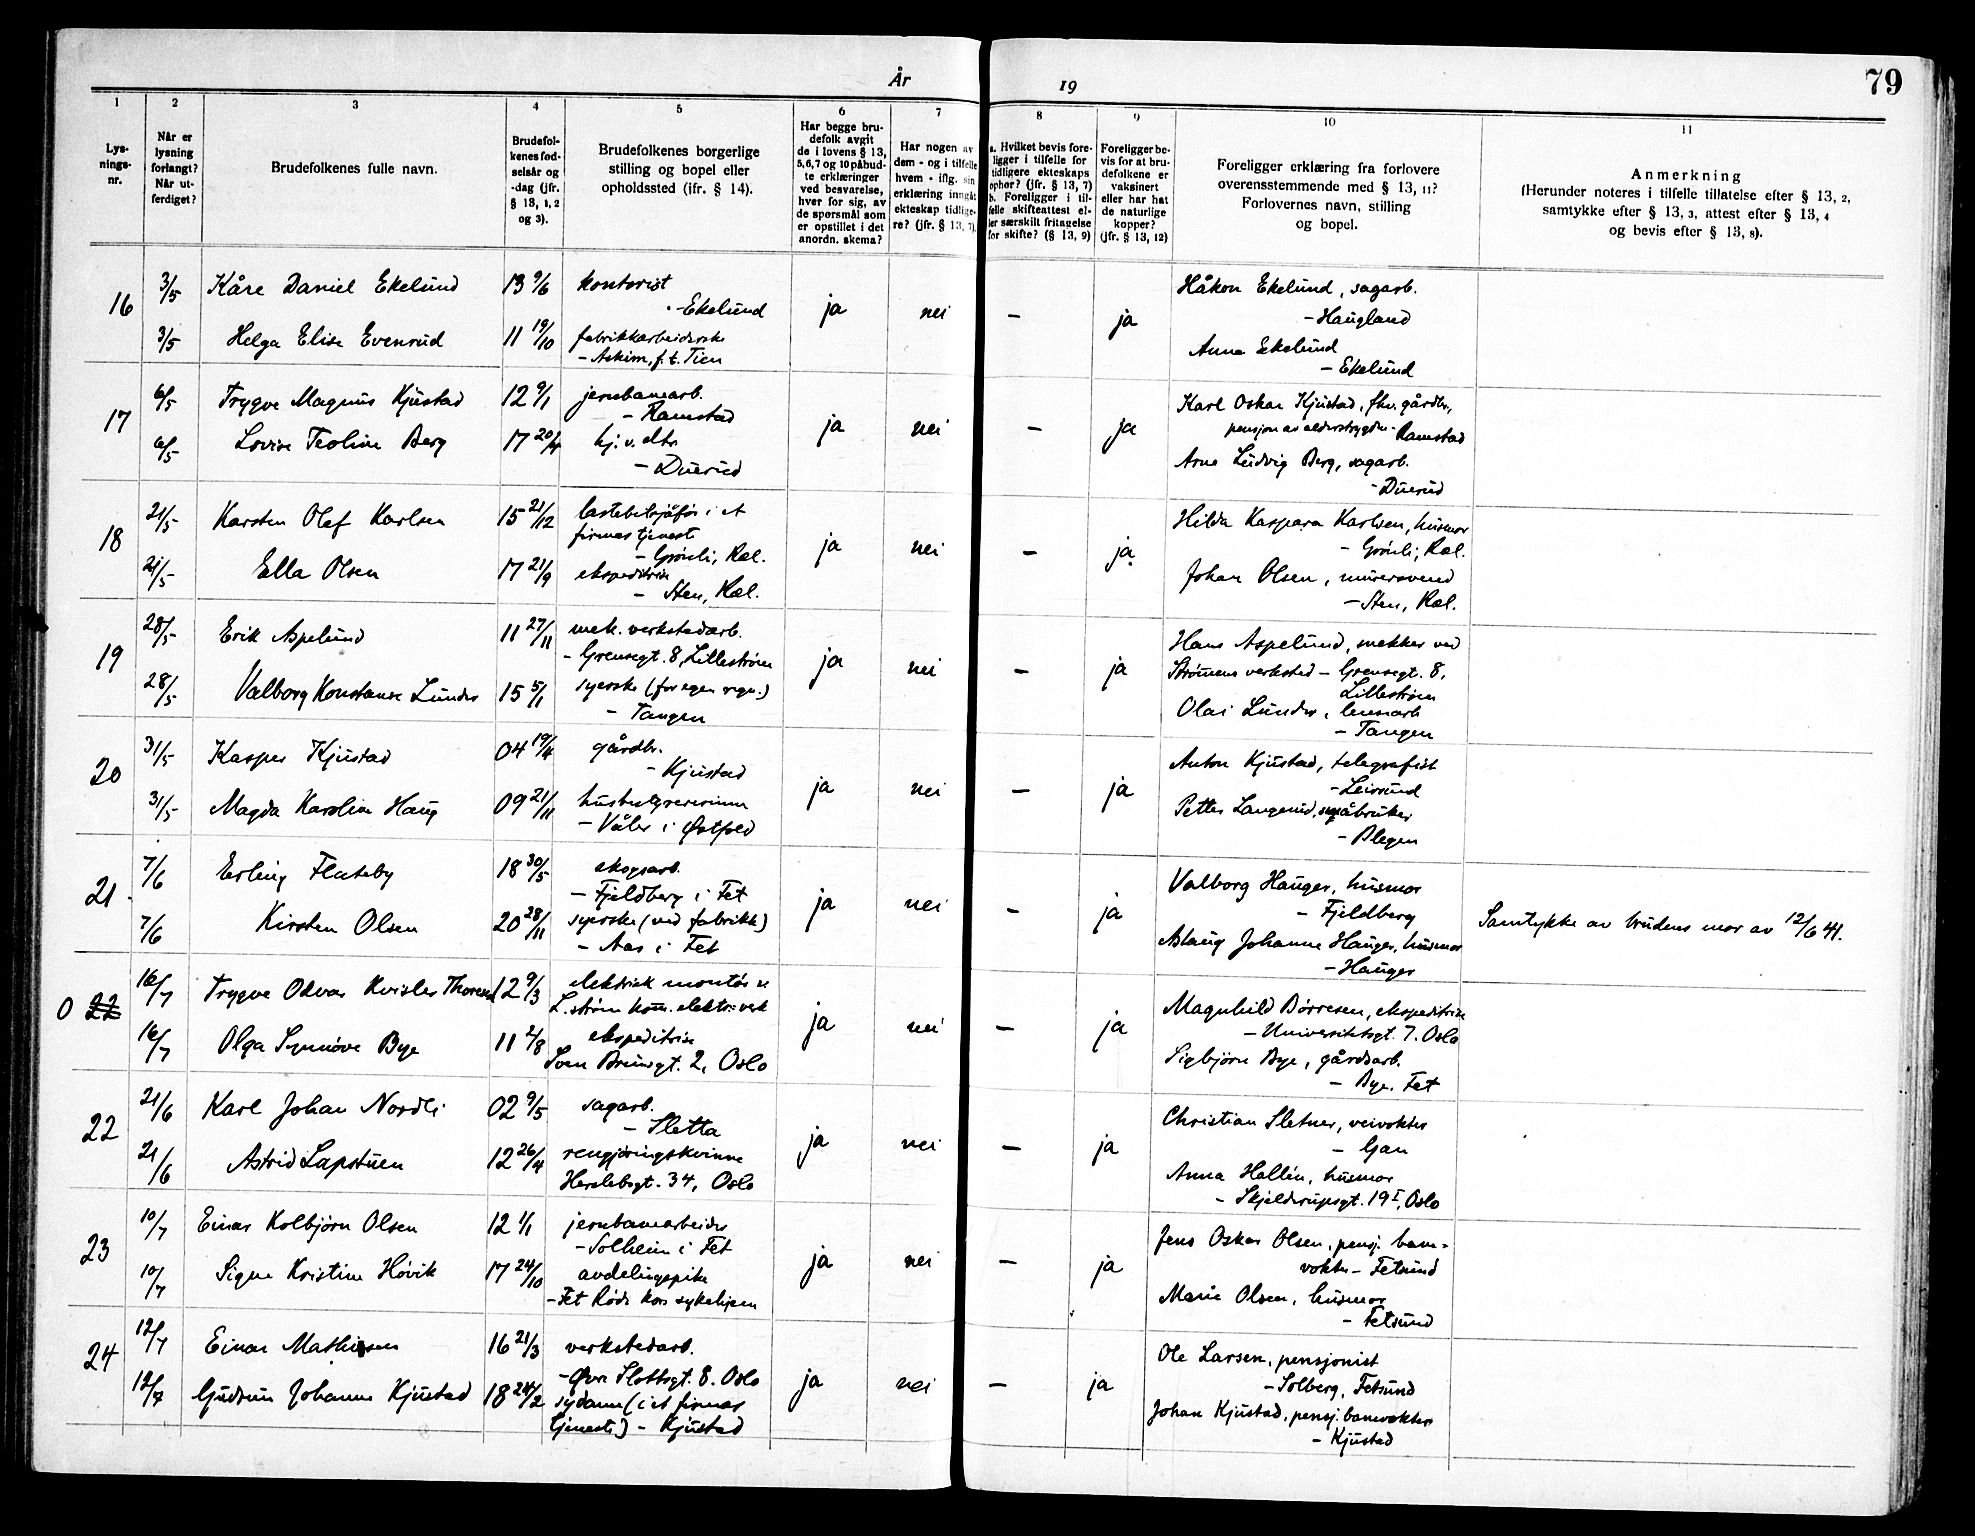 År
19
79
1
2
3
4
5
6
7
8
9
10
11
Lys-
nings-
nr.
Når er
lysning
forlangt?
Når ut-
ferdiget?
Brudefolkenes fulle navn.
Brudefol-
kenes fød-
selsår og
-dag (jfr.
§ 13, 1, 2
og 3).
Brudefolkenes borgerlige
stilling og bopel eller
opholdssted (ifr. § 14).
Har begge bru-
defolk avgit
de i lovens § 13,
5,6,7 og 10 påbud-
te erklæringer
ved besvarelse,
hver for sig, av
de spørsmål som
er opstillet i det
anordn. skema?
Har nogen av
dem - og i tilfelle
hvem - iflg. sin
erklæring inngåt
ekteskap tidlige-
re? (jfr. § 13, 7).
a. Hvilket bevis fore-
ligger i tilfelle for
tidligere ekteskaps
ophør? (jfr. § 13, 7)
b. Foreligger i til-
felle skifteattest el-
ler særskilt fritagelse
for skifte? (§ 13, 9)
Foreligger be-
vis for at bru-
defolkene er
vaksinert
eller har hat
de naturlige
kopper?
(jfr. § 13, 12)
Foreligger erklæring fra forlovere
overensstemmende med § 13, 11?
Forlovernes navn, stilling
og bopel.
Anmerkning
(Herunder noteres i tilfelle tillatelse efter § 13, 2,
samtykke efter § 13, 3, attest efter § 13, 4
og bevis efter § 13, 8).
16
3/5 Kåre Daniel Ekelund 13 9/6 kontorist
- Ekelund
ja nei - ja
3/5 Helga Elise Evenrud 11 19/10 fabrikkarbeiderske
- Askim, f.t. Tien
Håkon Ekelund, sagarb.
- Haugland
Anna Ekelund
- Ekelund
17
6/5 Trygve Magnus Kjustad 12 9/1 jernbanearb.
- Ramstad
ja nei - ja
6/5 Lovise Teoline Berg 17 20/4 hj. v. dtr
- Duerud
Karl Oskar Kjustad, fhv. gårdbr,
pensjon av alderstrygden - Ramstad
Arne Ludvig Berg, sagarb.
- Duerud
18
21/5 Karsten Olaf Karlsen 15 21/12 lastebilsjåfør i et
firmas tjeneste
- Grønli, Ræl.
ja nei - ja
21/5 Ella Olsen 17 21/9 ekspeditrise
- Sten, Ræl.
Hilda Kaspara Karlsen, husmor
- Grønli, Ræl.
Johan Olsen, murersvend
- Sten, Ræl.
19
28/5 Erik Aspelund 11 27/11 mek. verkstedarb.
- Grensegt. 8, Lillestrøm
ja nei - ja
28/5 Valborg Konstanse Lunder 15 5/1 syerske (for egen regn.)
- Tangen
Hans Aspelund, snekker ved
Strømmens verksted - Grensegt. 8,
Lillestrøm
Olai Lunder, lensearb
- Tangen
20
31/5 Kasper Kjustad 04 19/4 gårdbr.
- Kjustad
ja nei - ja
31/5 Magda Karoline Haug 09 21/11 husbestyrerinne
- Våler i Østfold
Anton Kjustad, telegrafist
- Leirsund
Petter Langerud, småbruker
- Blegen
21
7/6 Erling Flateby 18 30/5 skogsarb.
- Fjeldberg i Fet
ja nei - ja
7/6 Kirsten Olsen 20 28/11 syerske (ved fabrikk)
- Aas i Fet
Valborg Hauger, husmor
- Fjeldberg
Aslaug Johanne Hauger, husmor
- Hauger
Samtykke av brudens mor av 12/6 41.
0 22
16/7 Trygve Odvar Kvisler Thoresen 12 9/3 elektrisk montør v
L.strøm kom. elektr.verk
ja nei - ja
16/7 Olga Synnøve Bye 11 2/8 ekspeditrise
Sven Brunsgt. 2, Oslo
Magnhild Børresen, ekspeditrise
- Universitetsgt. 7. Oslo
Sigbjørn Bye, gårdsarb.
- Bye, Fet
22
21/6 Karl Johan Nordli 02 9/5 sagarb.
- Sletta
ja nei - ja
21/6 Astrid Lapstuen 12 26/4 rengjøringskvinne
Herslebsgt. 34, Oslo
Christian Sletner, veivokter
- Gan
Anna Hallén, husmor
- Skjelderupsgt. 19 I, Oslo
23
10/7 Einar Kolbjørn Olsen 12 1/1 jernbanearbeider
- Solheim i Fet
ja nei - ja
10/7 Signe Kristine Høvik 17 24/10 avdelingspike
- Fet Røde kors sykehjem
Jens Oskar Olsen, pensj. bane-
vokter - Fetsund
Marie Olsen, husmor
- Fetsund
24
12/7 Einar Mathisen 16 21/3 verkstedarb.
- Øvre Slottsgt. 8. Oslo
ja nei - ja
12/7 Gudrun Johanne Kjustad 18 24/2 sydame (i et firmas
tjeneste) - Kjustad
Ole Larsen, pensjonist
- Solberg, Fetsund
Johan Kjustad, pensj. banevokter
- Kjustad